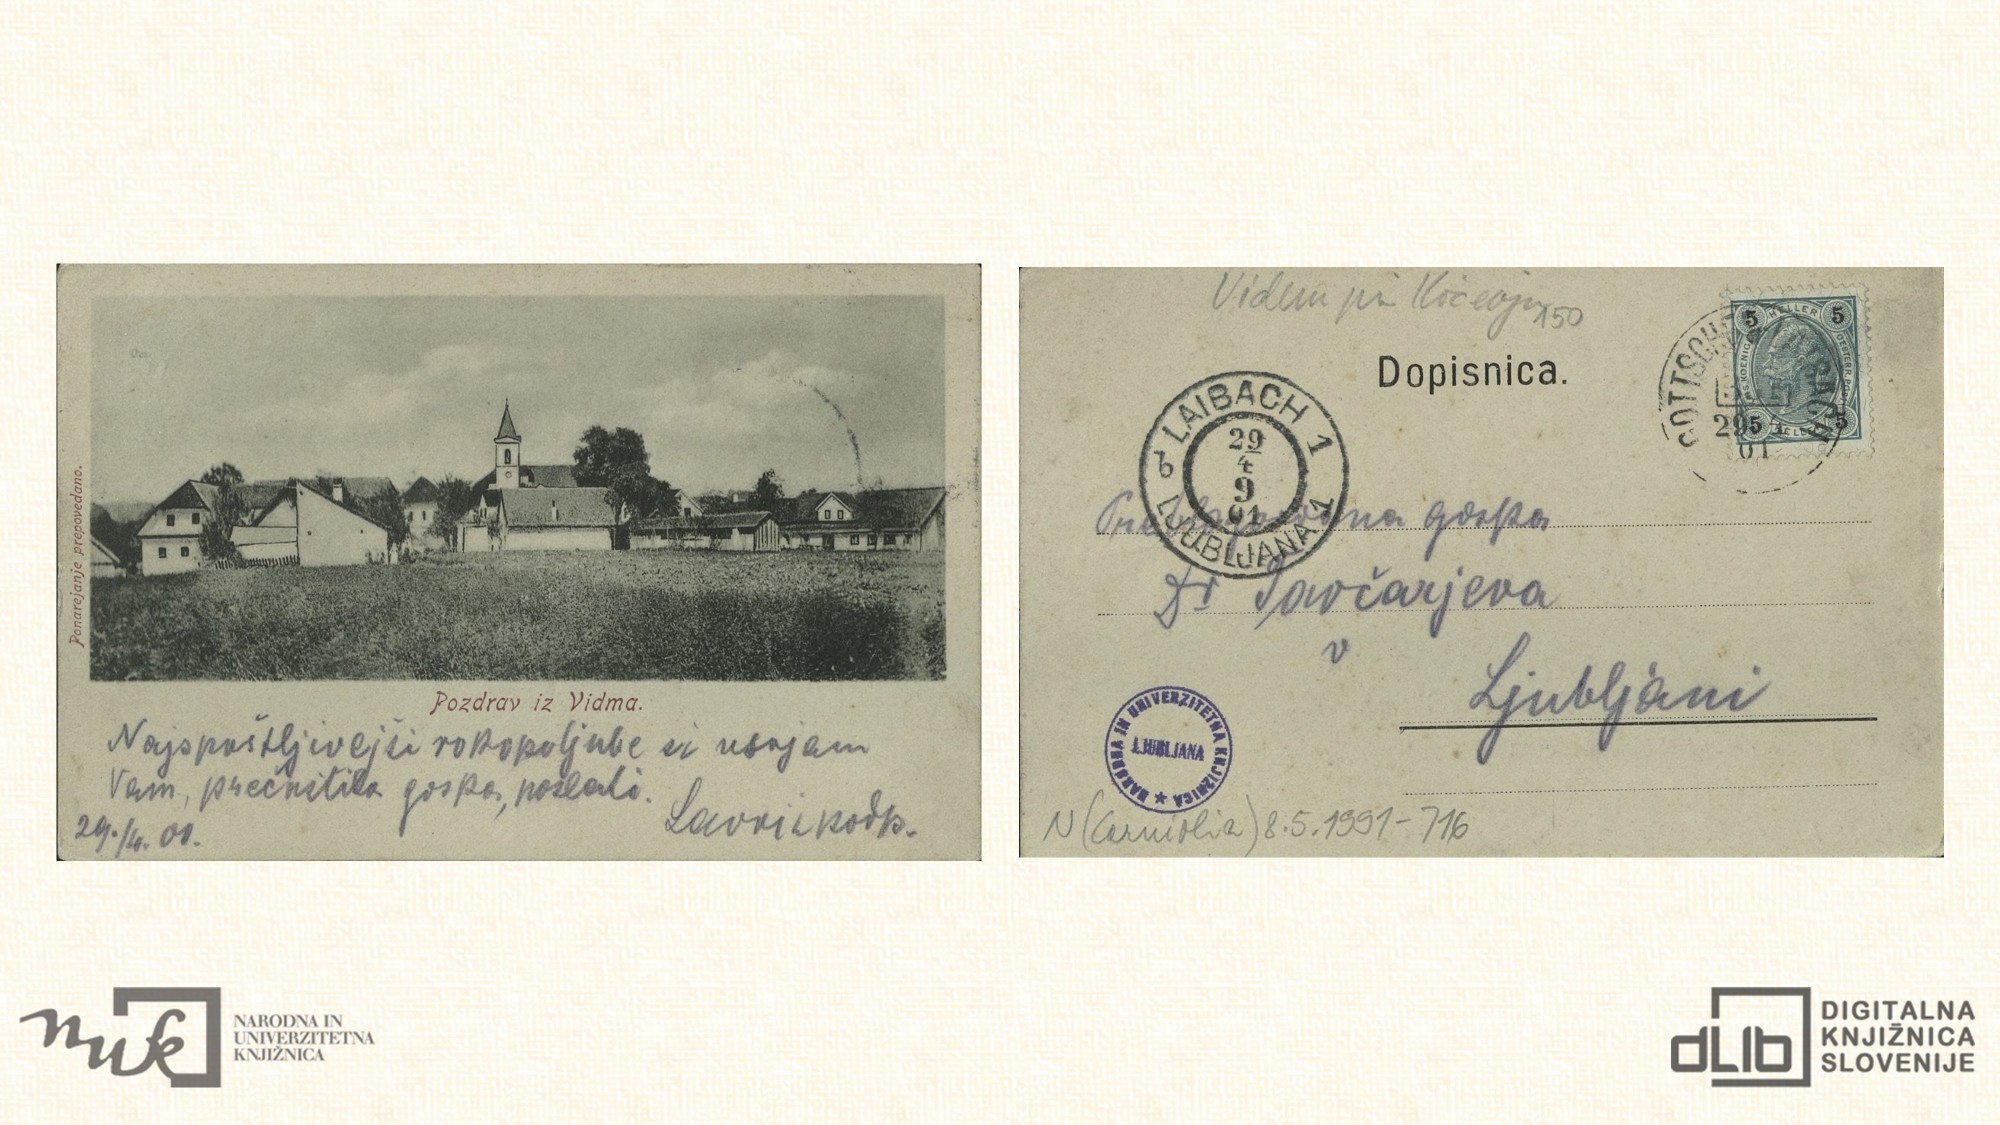 Ponarejanje prepovedano.
Pozdrav iz Vidma.
Najspoštljivejši rokopoljube si usojam
Vam, prečastita gospa, poslati.
29./4. 01.
Videm pri Kočevju
150
Dopisnica.
LAIBACH 1
29
4
9
01
b
LJUBLJANA 1
GOTTSCHEE
29 4
01
5 HELLER 5
5 HELLER 5
gospa
Dr Savčarjeva
v
Ljubljani
NARODNA IN UNIVERZITETNA KNJIŽNICA
LJUBLJANA
N (Carniolia) 8.5.1991-716
nuk
NARODNA IN
UNIVERZITETNA
KNJIŽNICA
dLib
DIGITALNA
KNJIŽNICA
SLOVENIJE